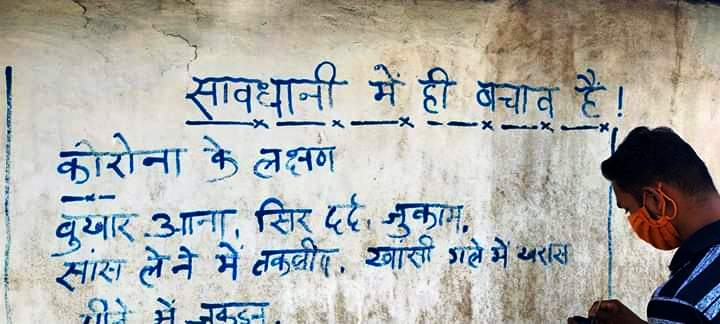 सावधानी में ही बचाव है!
कोरोना के लक्षण
वुखार आना, सिर दर्द, जुकाम,
सांस लेने में तकलीप, खांसी गले में खरास
सीने में जकडन,